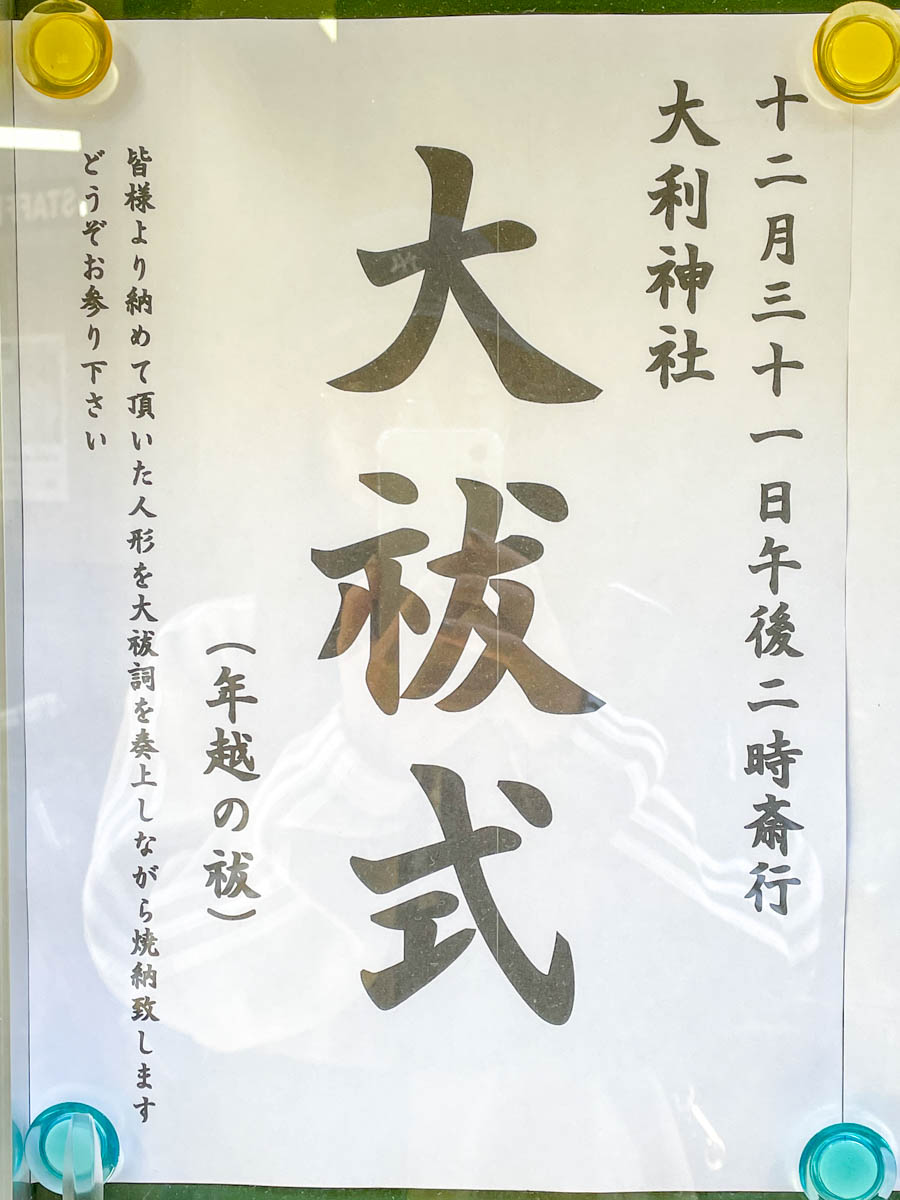 十二月三十一日午後二時斎行
大利神社
大祓式
（年越の祓）
皆様より納めて頂いた人形を大祓詞を奏上しながら焼納致します
どうぞお参り下さい